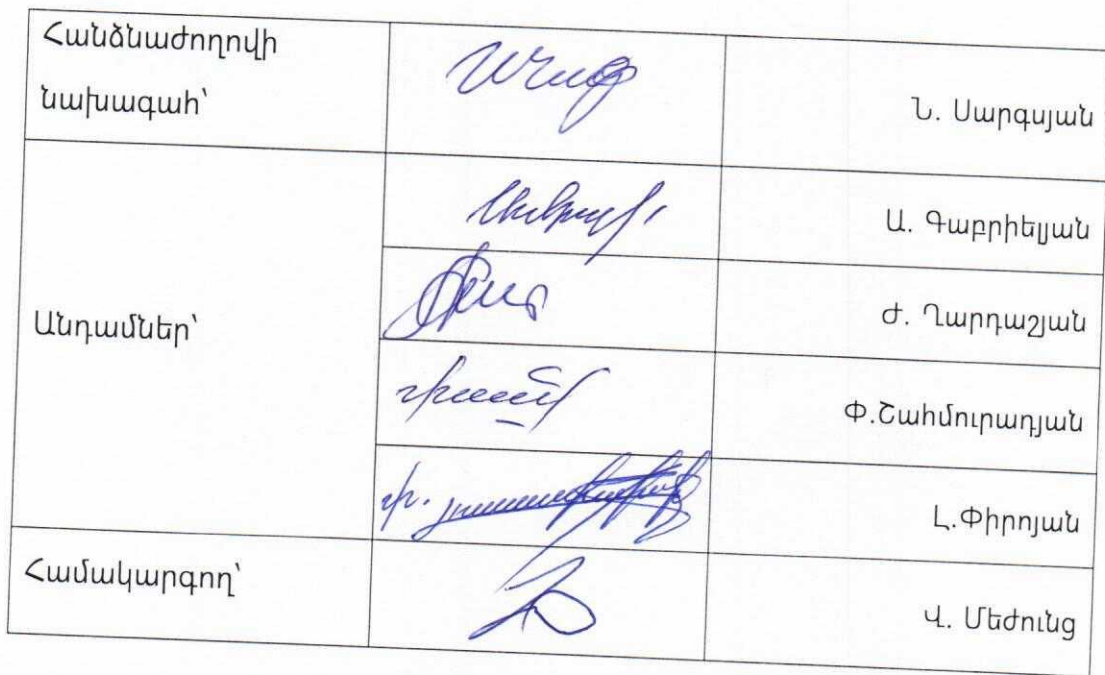 Հանձնաժողովի
նախագահ՝
Ն. Սարգսյան
Ա. Գաբրիելյան
Անդամներ՝
Ժ. Ղարդաշյան
Փ.Շահմուրադյան
Լ.Փիրոյան
Համակարգող՝
Վ. Մեժունց